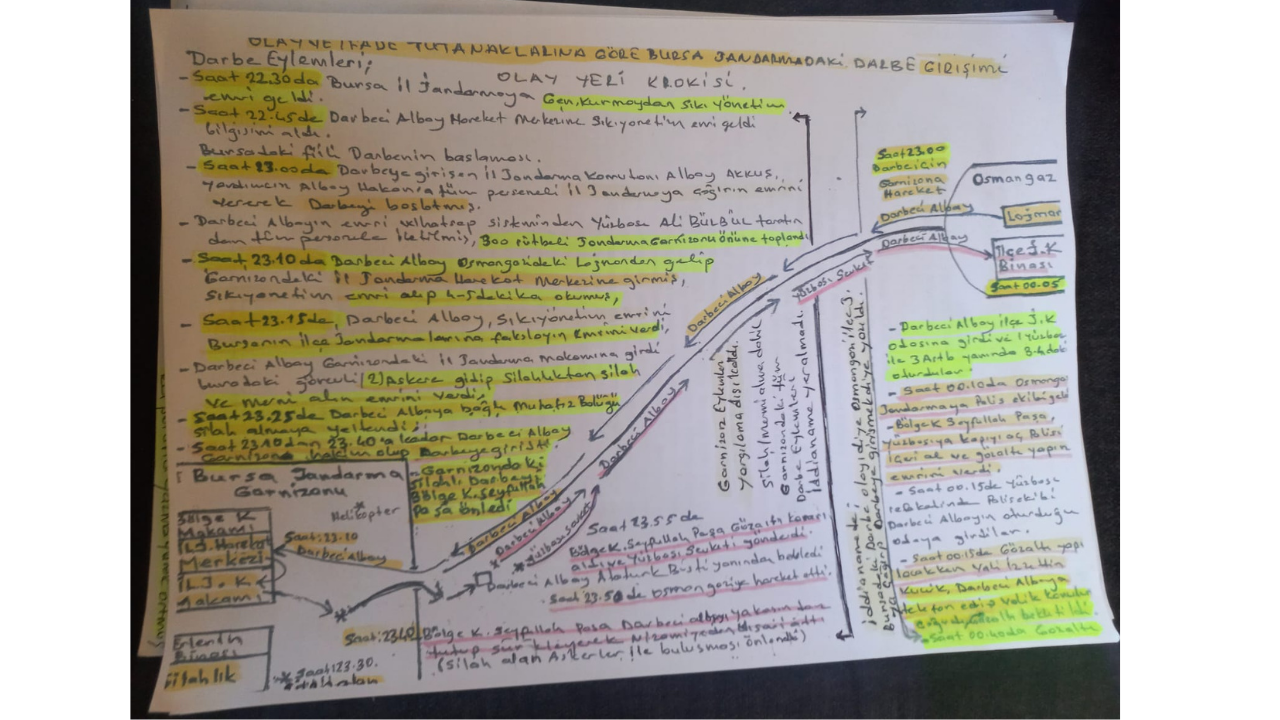 OLAY VE İFADE TUTANAKLARINA GÖRE BURSA JANDARMADAKİ DARBE GİRİŞİMİ
OLAY YERİ KROKİSİ.
Darbe Eylemleri;
- Saat 22.30 da Bursa il Jandarmaya Gen.Kurmaydan Sıkı yönetim
emri geldi.
- Saat 22.45 de Darbeci Albay Hareket Merkezine Sıkıyönetim emri geldi
bilgisini aldı.
Bursadaki fiili Darbenin başlaması.
- Saat 23.00 da Darbeye girişen il Jandarma Komutanı Albay AKKUŞ,
yardımcısı Albay Hakan'a tüm personeli il Jandarmaya çağırın emrini
vererek Darbeyi başlatmış.
- Darbeci Albayın emri whatsap sisteminden Yüzbaşı Ali BÜLBÜL tarafın
dan tüm personele iletilmiş, 300 rütbeli Jandarma Garnizonu önüne toplandı
- Saat 23.10 da Darbeci Albay Osmangazideki Lojmandan gelip
Garnizondaki il Jandarma Harekat Merkezine girmiş,
sıkıyönetim emri alıp 4-5 dakika okumuş,
- Saat 23.15 de, Darbeci Albay, Sıkıyönetim emrini
Bursanın ilçe Jandarmalarına fakslayın Emrini verdi,
- Darbeci Albay Garnizondaki il Jandarma makamına girdi
buradaki görevli (2) Askere gidip Silahlıktan silah
ve mermi alın emrini verdi,
- Saat 23.25 de Darbeci Albaya bağlı Muhafız Bölüğü
silah almaya yeltendi;
- Saat 23.10 dan 23.40 'a kadar Darbeci Albay
Garnizona hakim olup Darbeye girişti
- Garnizondaki
silahlı Darbeyi
Bölge K. Seyfullah
Paşa önledi
Bursa Jandarma
Garnizonu
Helikopter
Bölge K
Makamı
İ.J. Harekat
Merkezi
İ.J. K
Makamı
Saat: 23.10
Darbeci Albay
Binası
Silahlık
Saat: 23.30.
Darbeci Albay
Darbeci Albay
Yüzbaşı Sevket
Darbeci Albay
Darbeci Albay
Yüzbaşı Sevket
Saat 23.00
Darbe için
Garnizona
Hareket
Darbeci Albay
Darbeci Albay
Osmangaz
Lojman
İlçe J.K
Binası
Saat 00.05
Garnizon Eylemleri
yargılama dışı kaldı.
Silah/Mermi alma dahil
Garnizondaki tüm
Darbe Eylemlere
iddianame yer almadı.
Saat 23.55 de
Bölge K. Seyfullah Paşa Gözaltı kararı
aldı ve Yüzbaşı Sevketi gönderdi.
Darbeci Albay Atatürk Büstü yanından bekledi
. Saat 23.50 de osmangaziye hareket etti.
Saat: 23.40 Bölge K. Seyfullah Paşa Darbeci albayı yakasından
tutup sürükleyerek Nizamiyeden Dışarı attı
(Silah alan Askerler ile buluşması önlendi)
- Darbeci Albay ilçe J.K
odasına girdi ve 1 Yüzbaşı
oturdular
- Saat 00.10 da Osmanga
Jandarmaya Polis ekibi geldi
- Bölge K Seyfullah Paşa,
Yüzbaşıya kapıyı aç Polisi
içeri al ve gözaltı yapın
emrini verdi.
- Saat 00.15 de Yüzbaşı
refakatinde Polis ekibi
Darbeci Albayın oturduğu
odaya girdiler.
- Saat 00.15 de Gözaltı yapı
lacakken Vali İzzettin
Küçük, Darbeci Albaya
telefon edip Valilik
- Saat 00.40 da Gözaltı